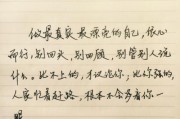 做最真实最漂亮的自己，依心
而行，别回头，别四顾，别管别人说
什么。比不上你的，才议论你；比你强的，
人家忙着赶路，根本不会多看你一
眼。